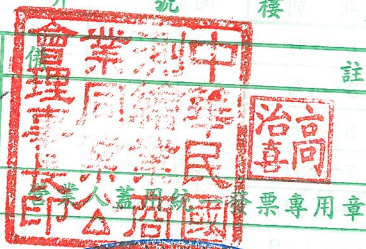 號 樓
備 註
中華民國
商
業同 公
會理事長印
治喜
營業人蓋用統一發票專用章